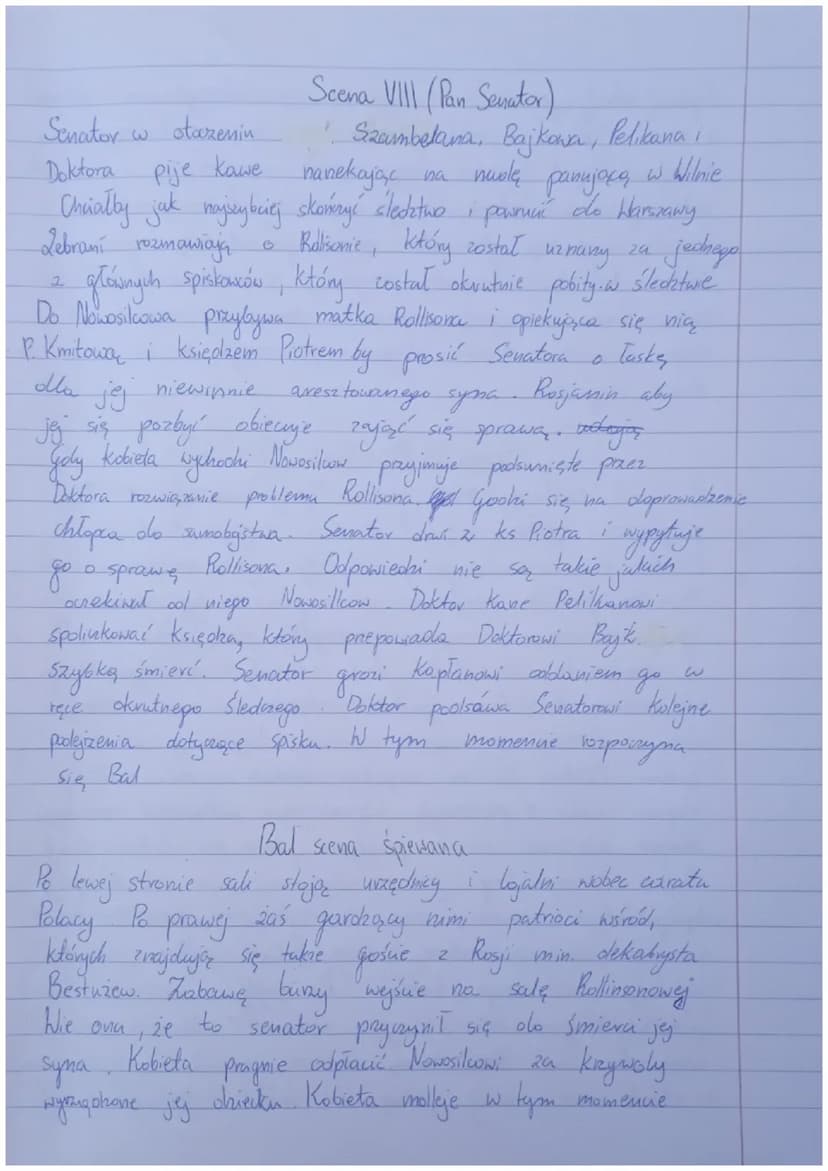 Scena VIII (Pan Senator)
Senator w otoczeniu Szambelana, Bajkowa, Pelikana i
Doktora pije kawe nanekając na nudę panującą w Wilnie
Chciałby jak najszybciej skończyć śledztwo i powrucić do Warszawy
Zebrani rozmawiają o Rollisonie, który został uznany za jednego
z głównych spiskowców, który został okrutnie pobity w śledztwie
Do Nowosilcowa przybywa matka Rollisona i opiekująca się nią
P. Kmitową i księdzem Piotrem by prosić Senatora o łaskę
dla jej niewinnie aresztowanego syna. Rosjanin aby
jej się pozbyć obiecuje zająć się sprawą.
Gdy kobieta wychodzi Nowosilcow przyjmuje podsunięte przez
Doktora rozwiązanie problemu Rollisona. Godzi się na doprowadzenie
chłopca do samobójstwa. Senator drwi zi ks Piotra i wypytuje
go o sprawę Rollisona. Odpowiedzi nie są takie jakich
oczekiwał od niego Nowosilcow. Doktor każe Pelikanowi
spoliczkować księdza, który przepowiada Doktorowi Bajk.
szybką śmierć. Senator grozi kapłanowi oddaniem go w
ręce okrutnego śledczego. Doktor podsówa Senatorowi kolejne
podejrzenia dotyczące spisku. W tym momencie rozpoczyna
się Bal
Bal scena śpiewana
Po lewej stronie sali stoją urzędnicy i lojalni wobec caratu
Polacy. Po prawej zaś gardzący nimi patrioci wśród,
których znajdują się także goście z Rosji min. dekabrysta
Bestużew. Zabawę burzy wejście na salę Rollinsonowej
Wie ona, że to senator przyczynił się do śmierci jej
syna. Kobieta pragnie odpłacić Nowosilcowi za krzywdy
wyrządzone jej dziecku. Kobieta mdleje w tym momencie